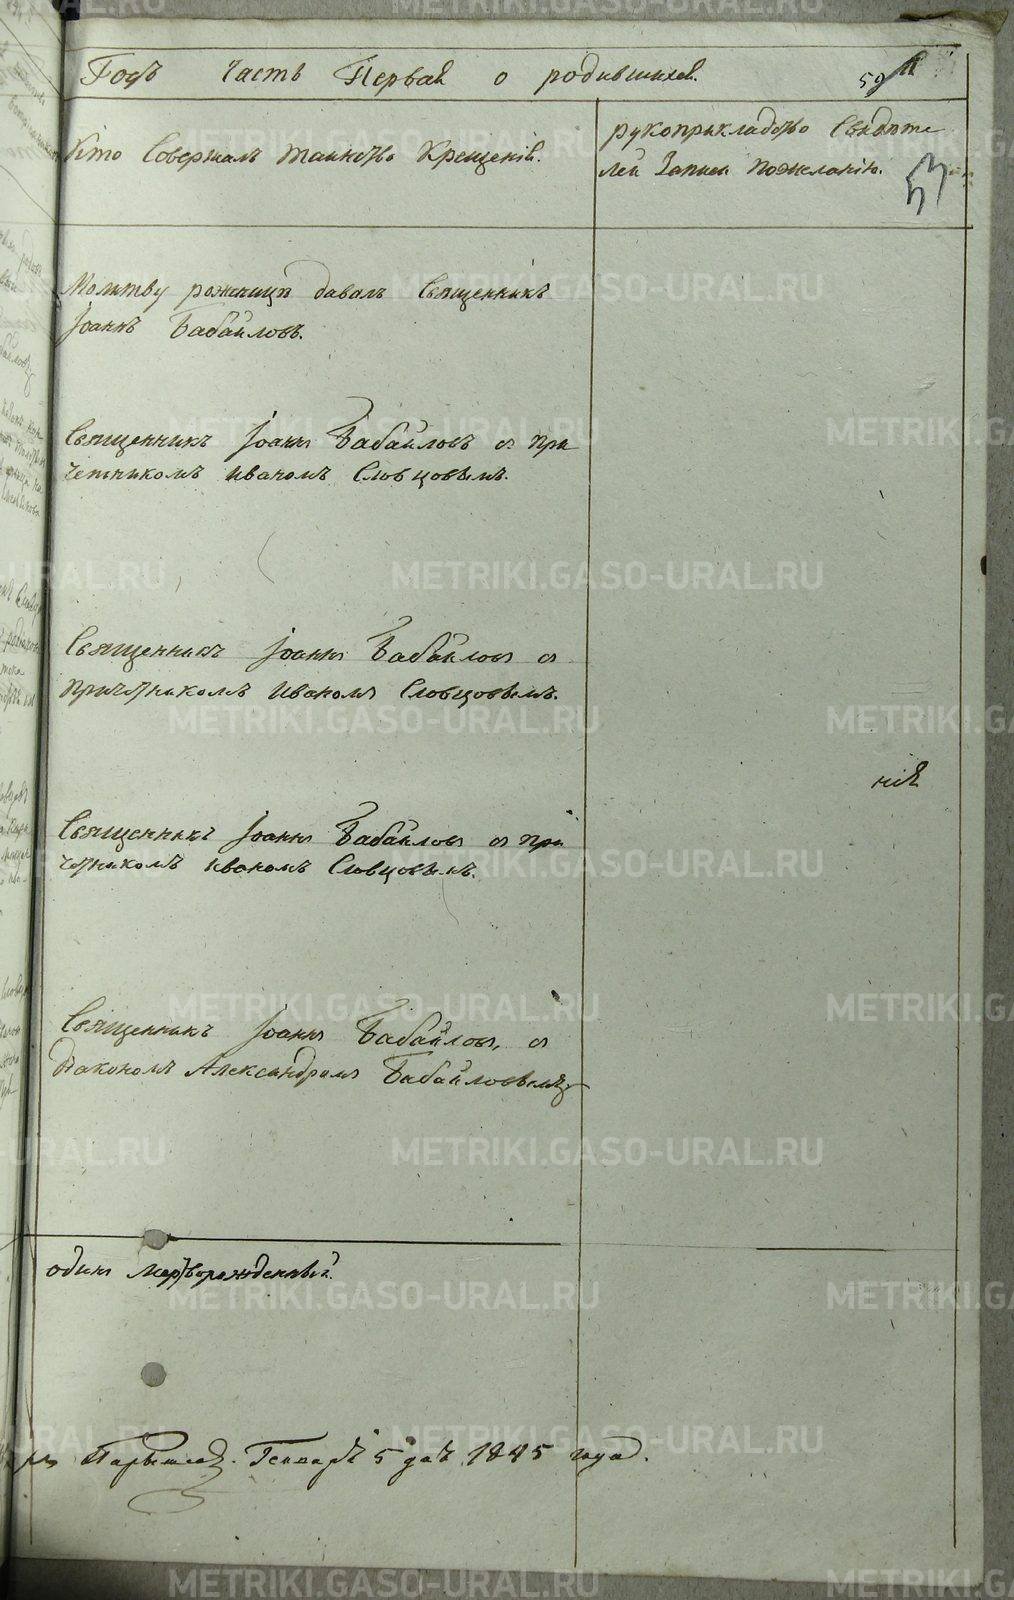 Годъ часть Первая о родившихся. 59
Кто Совершалъ таинство Крещенія.
рукоприкладство Свидѣте
лей Записи пожеланію.
53
Молитву роженицѣ давалъ Священникъ
Іоаннъ Бабайловъ.
Священникъ Іоаннъ Бабайловъ съ При
четникомъ Иваномъ Словцовымъ.
Священникъ Іоаннъ Бабайловъ съ
Причетникомъ Иваномъ Словцовымъ.
нія
Священникъ Іоаннъ Бабайловъ съ При
четникомъ Иваномъ Словцовымъ.
Священникъ Іоаннъ Бабайловъ, съ
Діакономъ Александромъ Бабайловымъ
одинъ мертворожденный.
Генваря 5 дня 1845 года.
METRIKI.GASO-URAL.RU